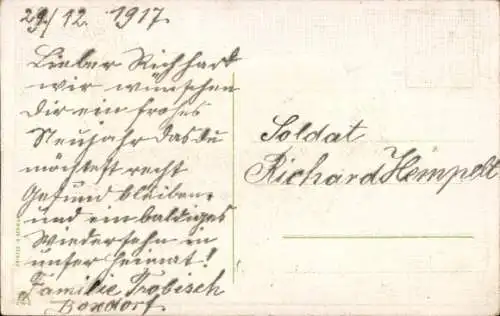 29/12. 1917.
Lieber Richhard
wir wünschen
Dir ein frohes
Neujahr das du
möchtest recht
Gesund bleiben,
und ein baldiges
Wiedersehn in
unser heimat!
Familie Trobisch
Boxdorf
Soldat
Richard Hempelt